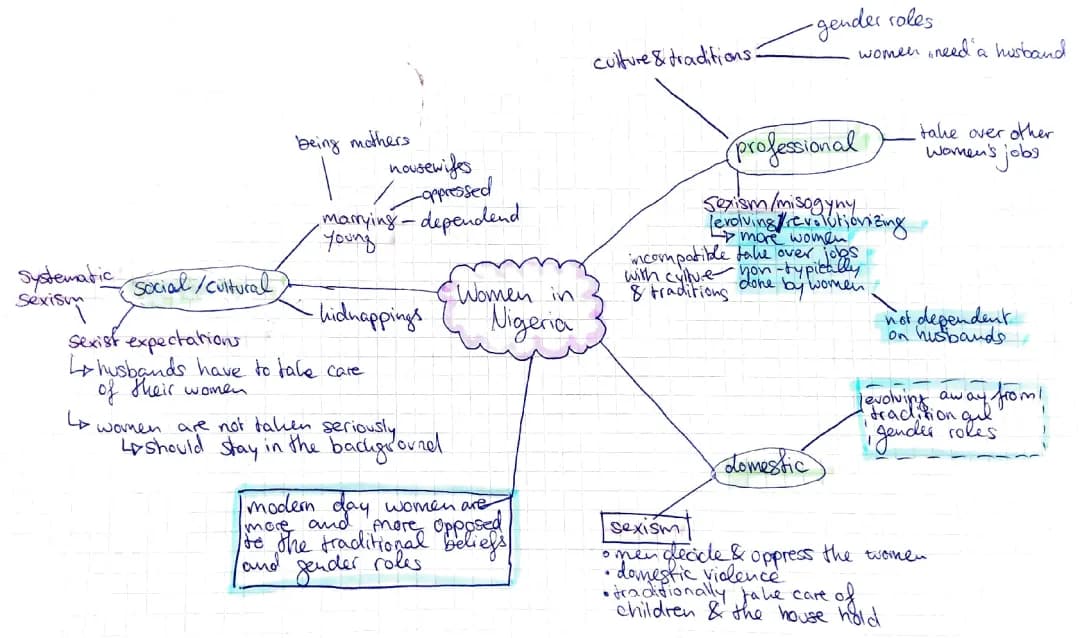 gender roles
culture & traditions
women "need" a husband
professional
take over other
women's jobs
sexism/misogyny
evolving/revolutionizing
↳ more women
take over jobs
non-typically
done by women
incompatible
with culture
& traditions
not dependent
on husbands
being mothers
housewifes
oppressed
marrying
young
dependend
systematic
sexism
social/cultural
kidnappings
sexist expectations
↳ husbands have to take care
of their women
↳ women are not taken seriously
↳ should stay in the background
Women in
Nigeria
evolving away from
traditional
gender roles
domestic
sexism
• men decide & oppress the women
• domestic violence
• traditionally take care of
children & the house hold
modern day women are
more and more opposed
to the traditional beliefs
and gender roles